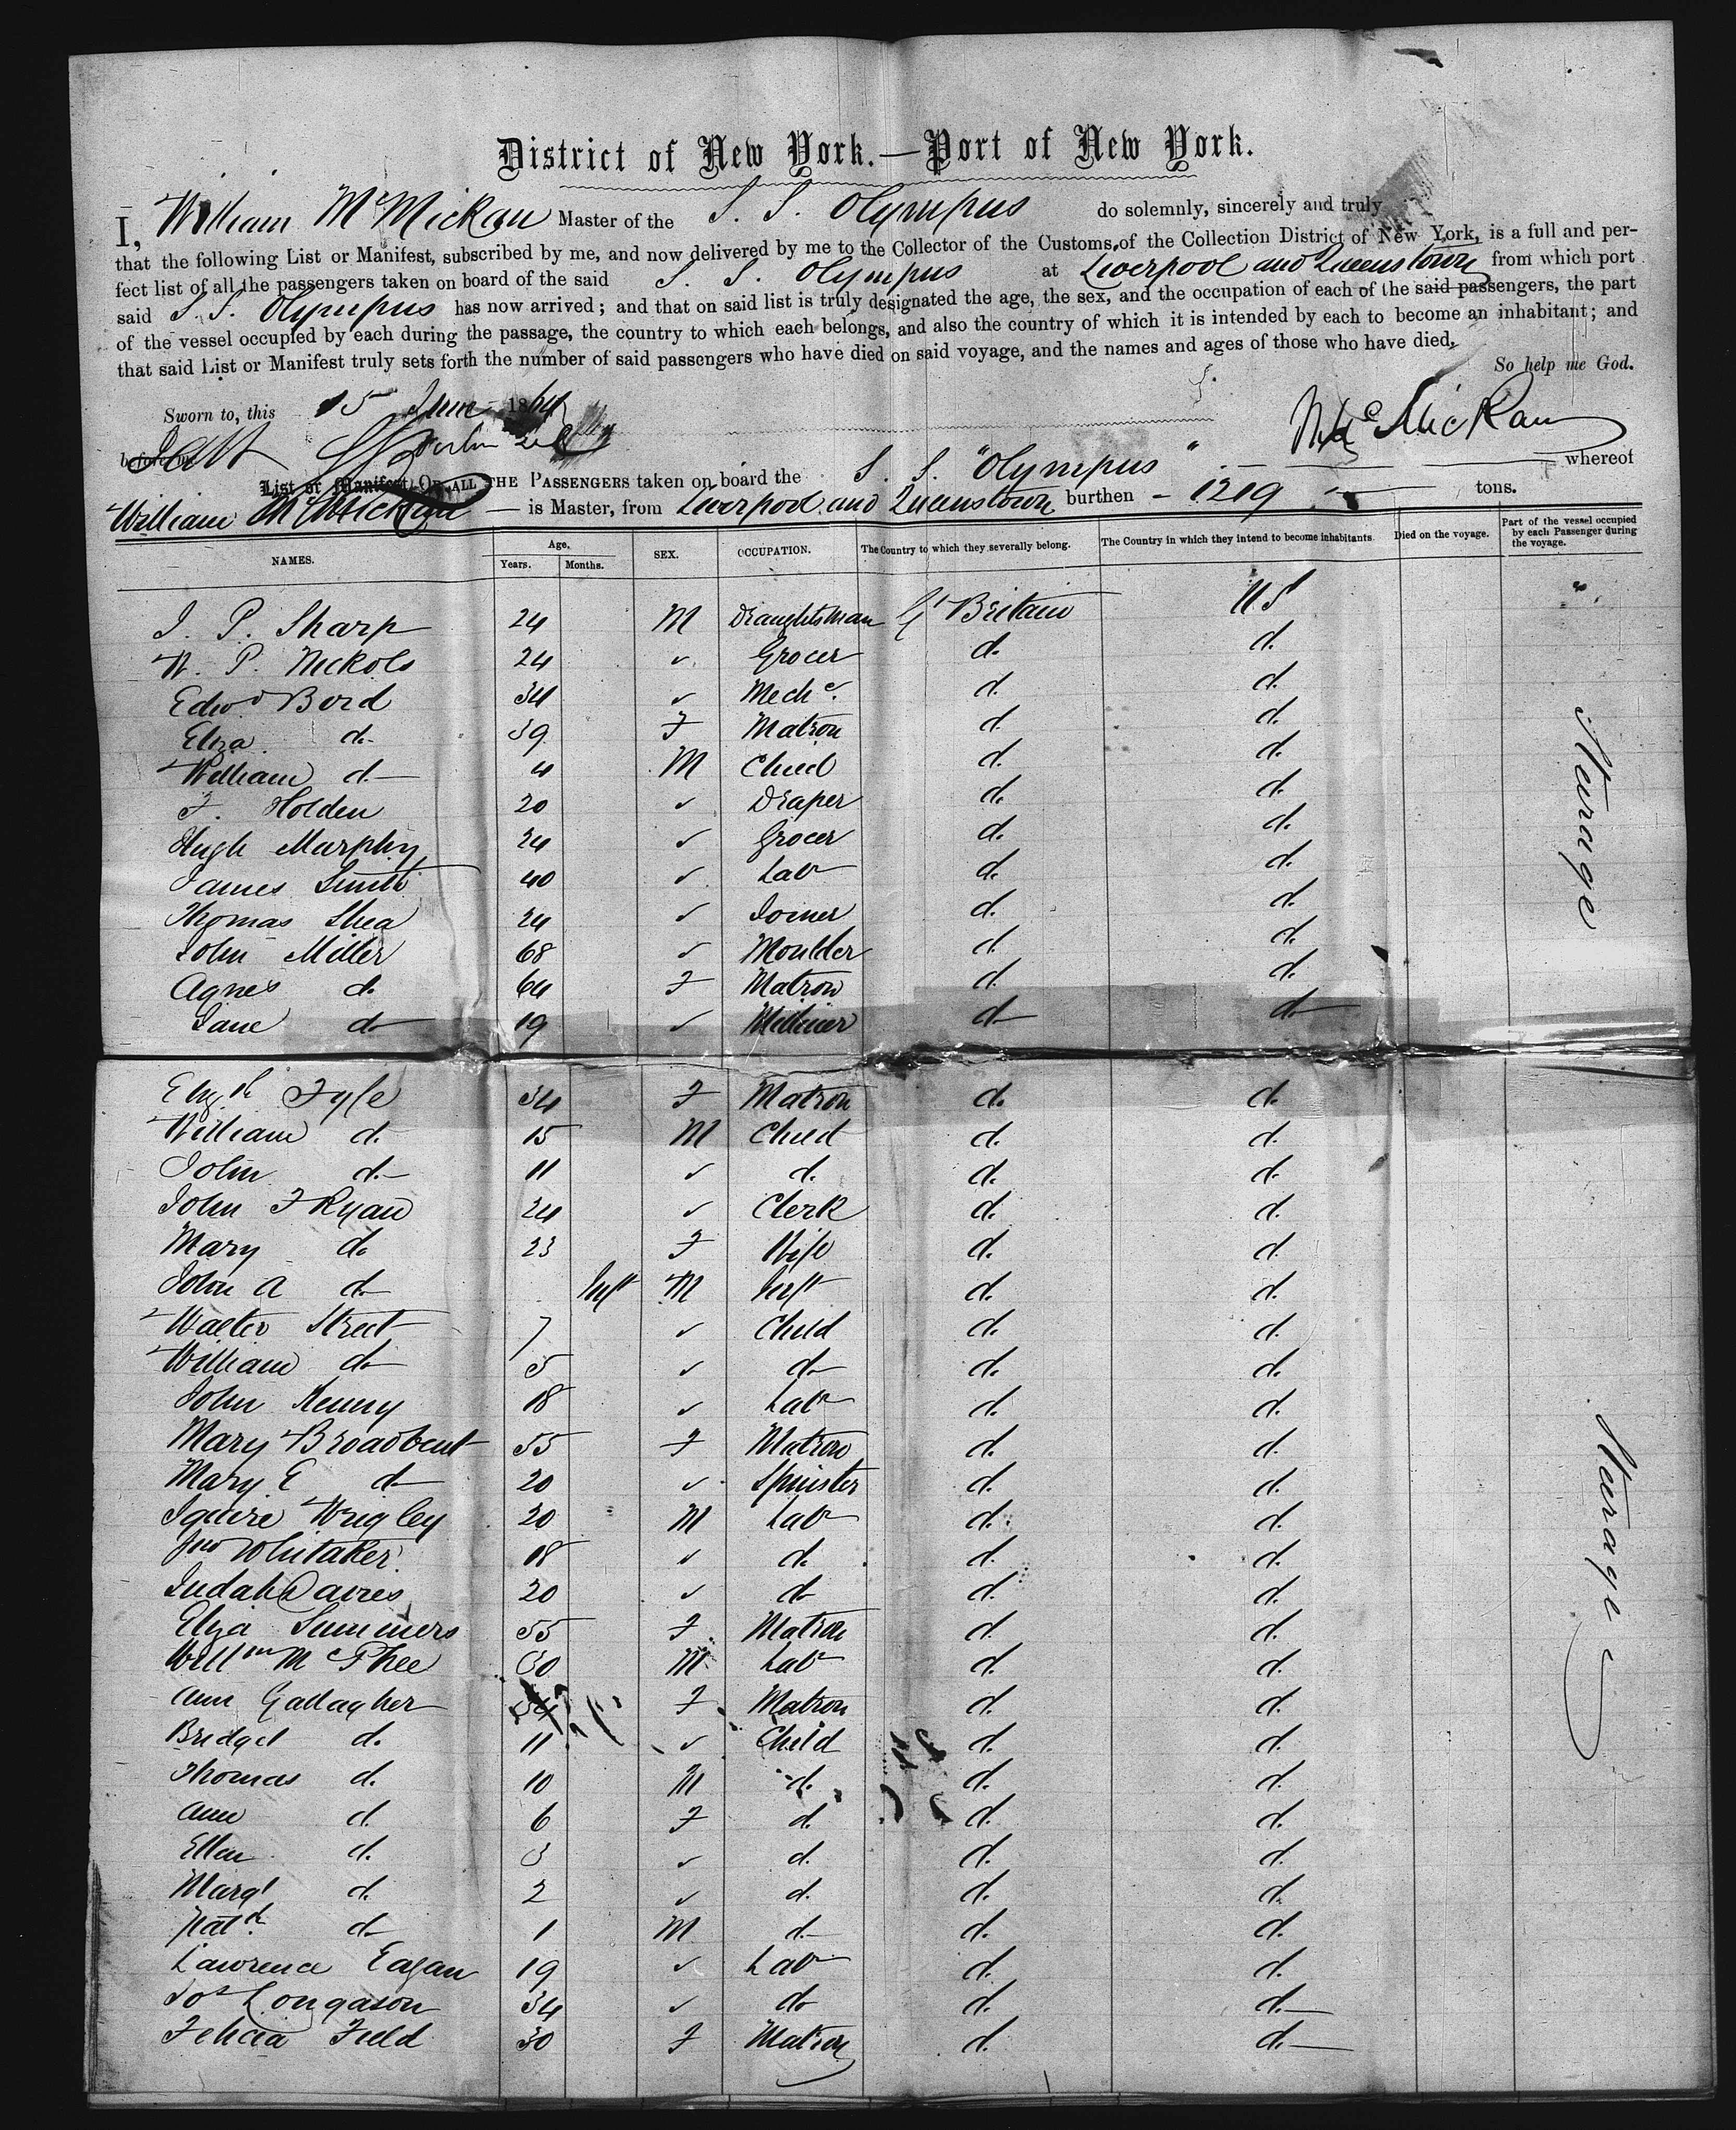 District of New York.—Port of New York.
I, William McMickan Master of the S. S. Olympus do solemnly, sincerely and truly
that the following List or Manifest, subscribed by me, and now delivered by me to the Collector of the Customs, of the Collection District of New York, is a full and per-
fect list of all the passengers taken on board of the said S. S. Olympus at Liverpool and Queenstown from which port
said S. S. Olympus has now arrived; and that on said list is truly designated the age, the sex, and the occupation of each of the said passengers, the part
of the vessel occupied by each during the passage, the country to which each belongs, and also the country of which it is intended by each to become an inhabitant; and
that said List or Manifest truly sets forth the number of said passengers who have died on said voyage, and the names and ages of those who have died.
So help me God.
Sworn to, this 15 June 1864
before me
Wm McMickan
List or Manifest OF ALL THE PASSENGERS taken on board the S. S. "Olympus" whereof
William McMickan is Master, from Liverpool and Queenstown burthen - 1219 - tons.
NAMES. Age. Years. Months. SEX. OCCUPATION. The Country to which they severally belong. The Country in which they intend to become inhabitants Died on the voyage. Part of the vessel occupied by each Passenger during the voyage.
J. P. Sharp 24 M Draughtsman Gt Britain U S "
W. P. Nickols 24 ✓ Grocer d. d.
Edwd Bord 34 ✓ Mechc. d. d.
Eliza d. 39 F Matron d. d.
William d. 4 M Child d. d.
F. Holden 20 ✓ Draper d. d.
Hugh Murphy 24 ✓ Grocer d. d.
James Smith 40 ✓ Labr d. d.
Thomas Shea 24 ✓ Joiner d. d.
John Miller 68 ✓ Moulder d. d.
Agnes d. 64 F Matron d. d.
Jane d. 19 ✓ Milliner d. d.
Steerage
Elizth Fyfe 34 F Matron d. d.
William d. 15 M Child d. d.
John d. 11 ✓ d. d. d.
John F Ryan 24 ✓ Clerk d. d.
Mary do 23 F Wife d. d.
John A d. Inft M Inft d. d.
Walter Street 7 ✓ Child d. d.
William do 5 ✓ do d. d.
John Kenny 18 ✓ Labr d. d.
Mary Broadbent 55 F Matron d. d.
Mary E do 20 ✓ Spinster d. d.
Squire Wrigley 20 M Labr d. d.
Jno Whitaker 18 ✓ d. d. d.
Judah Davies 20 ✓ do d. d.
Eliza Summers 55 F Matron d. d.
Willm McPhee 30 M Labr d. d.
Ann Gallagher 34 F Matron d. d.
Bridget d. 11 ✓ Child d. d.
Thomas d. 10 M d. d. d.
Ann d. 6 F d. d. d.
Ellen d. 3 ✓ d. d. d.
Margt d. 2 ✓ d. d. d.
d. 1 M d. d. d.
Lawrence Eagan 19 ✓ Labr d. d.
Jos Longason 34 ✓ do d. d.
Felicia Field 30 F Matron d. d.
Steerage